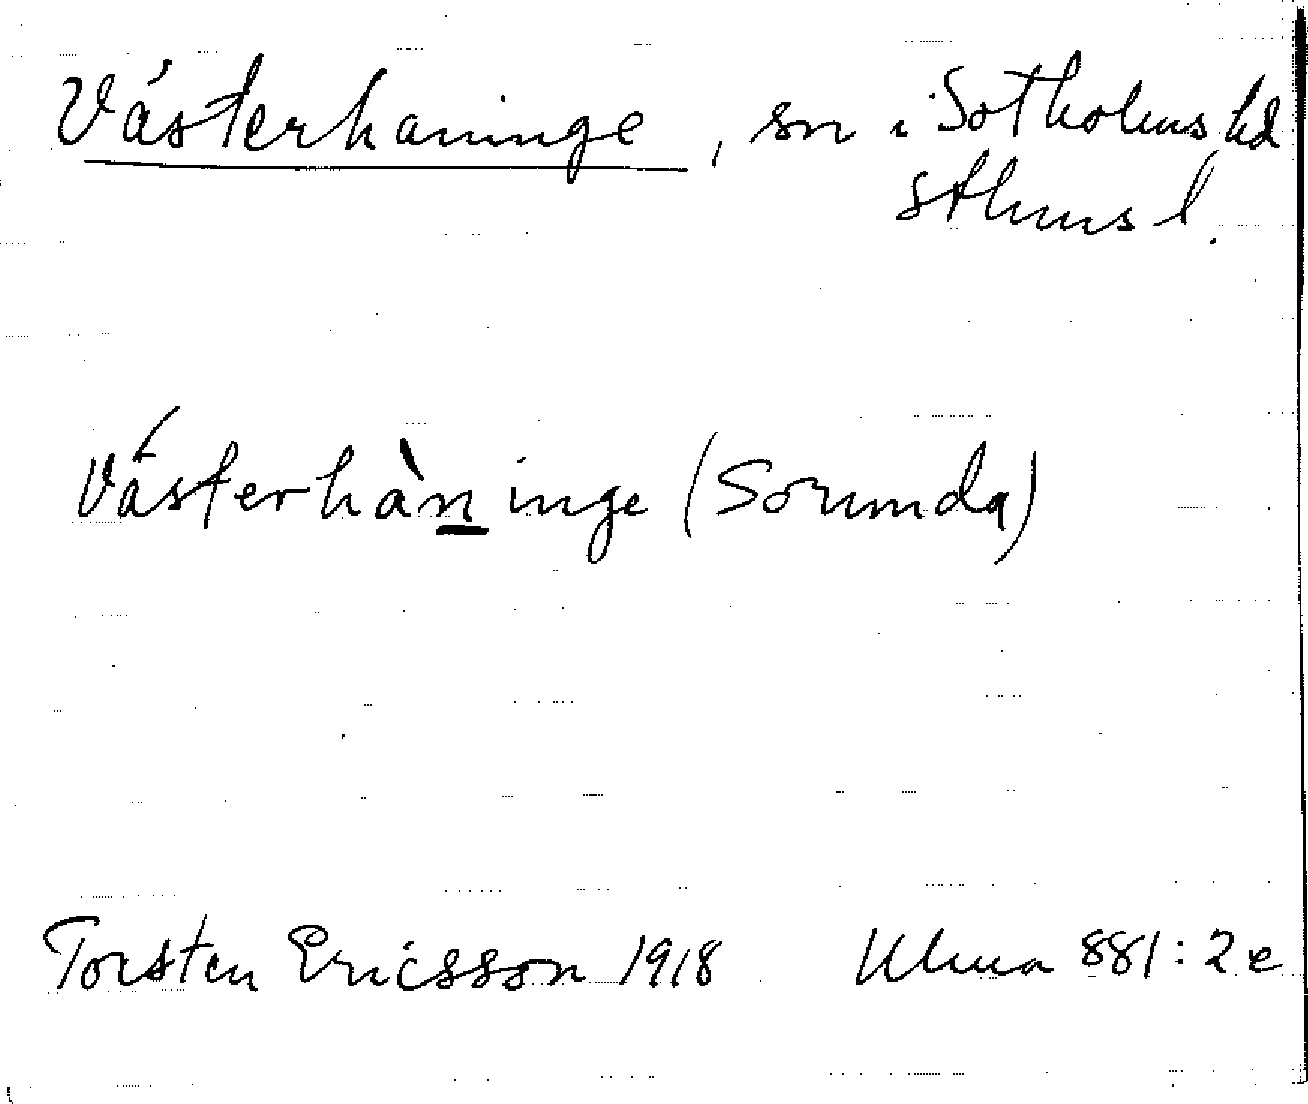 Västerhaninge, sn i Sotholms hd
Sthms l.
Västerhàninge (Sorunda)
Torsten Ericsson 1918 Ulma 881:2e